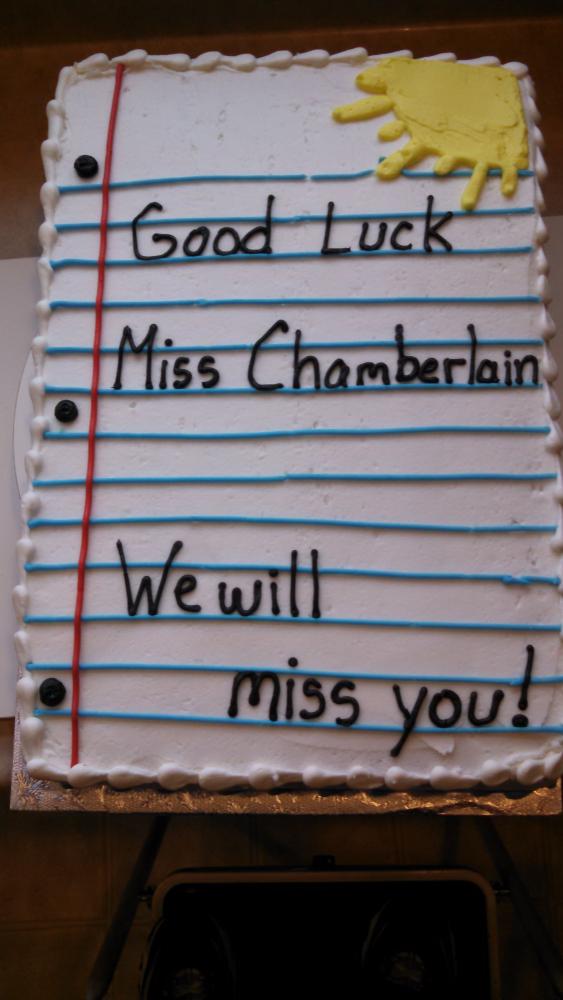 Good Luck
Miss Chamberlain
We will
miss you!